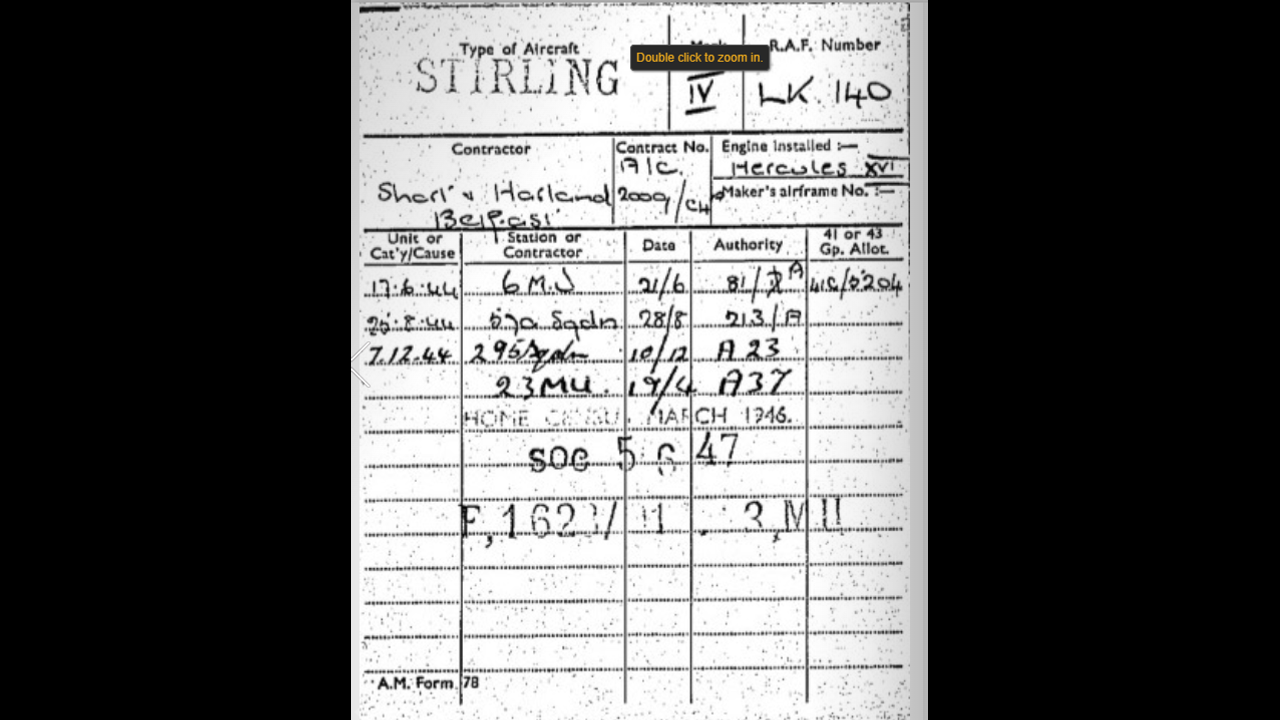 Type of Aircraft R.A.F. Number
Double click to zoom in.
STIRLING IV LK.140
Contractor Contract No. Engine Installed :—
A/C. Hercules XVI
Short & Harland 2009/C4 Maker's airframe No. :—
Belfast
Unit or Cat'y/Cause Station or Contractor Date Authority 41 or 43 Gp. Allot.
17.6.44 6 M.U 21/6 81/ A 41G/5204
25.8.44 570 Sqdn 28/8 213/A
7.12.44 295 Sqdn 10/12 A 23
23 MU. 19/4 A37
HOME CENSU MARCH 1946.
SOC 5 6 47
MU
A.M. Form 78